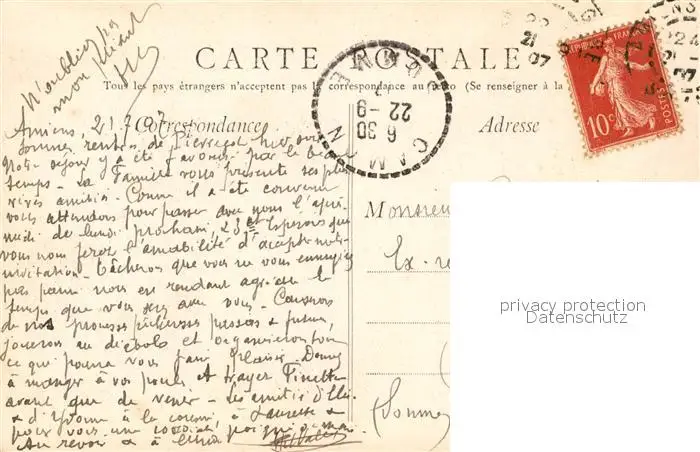 N'oubliez pas
mon pliant
CARTE POSTALE
Tous les pays étrangers n'acceptent pas la correspondance au recto (Se renseigner à la
REPUBLIQUE FRANÇAISE
POSTES
10c
21
07
6 30
22 - 9
Correspondance
Adresse
Amiens, 21 7 07
sommes rentrés de Pierregot hier soir
Notre séjour y a été favorisé par le beau
temps - La Famille vous présente ses plus
vives amitiés. Comme il a été convenu
vous attendons pour passer avec nous l'après
midi de lundi prochain, 23 et espérons que
vous nous ferez l'amabilité d'accepter notre
invitation. Tâcherons que vous ne vous ennuyiez
pas parmi nous en rendant agréable le
temps que vous avec nous. Causerons
de nos prouesses pêcheuses passées & futures,
jouerons au diabolo et organiserons tout
ce qui pourra vous faire plaisir. Donnez
à manger à vos poules et trayez Finette
avant que de venir - Les amitiés d'
& d'Yvonne à la à Laurette &
pour vous une cordiale poignée de main
Au revoir & à lundi
Monsieur
Ex-
(Somme
privacy protection
Datenschutz